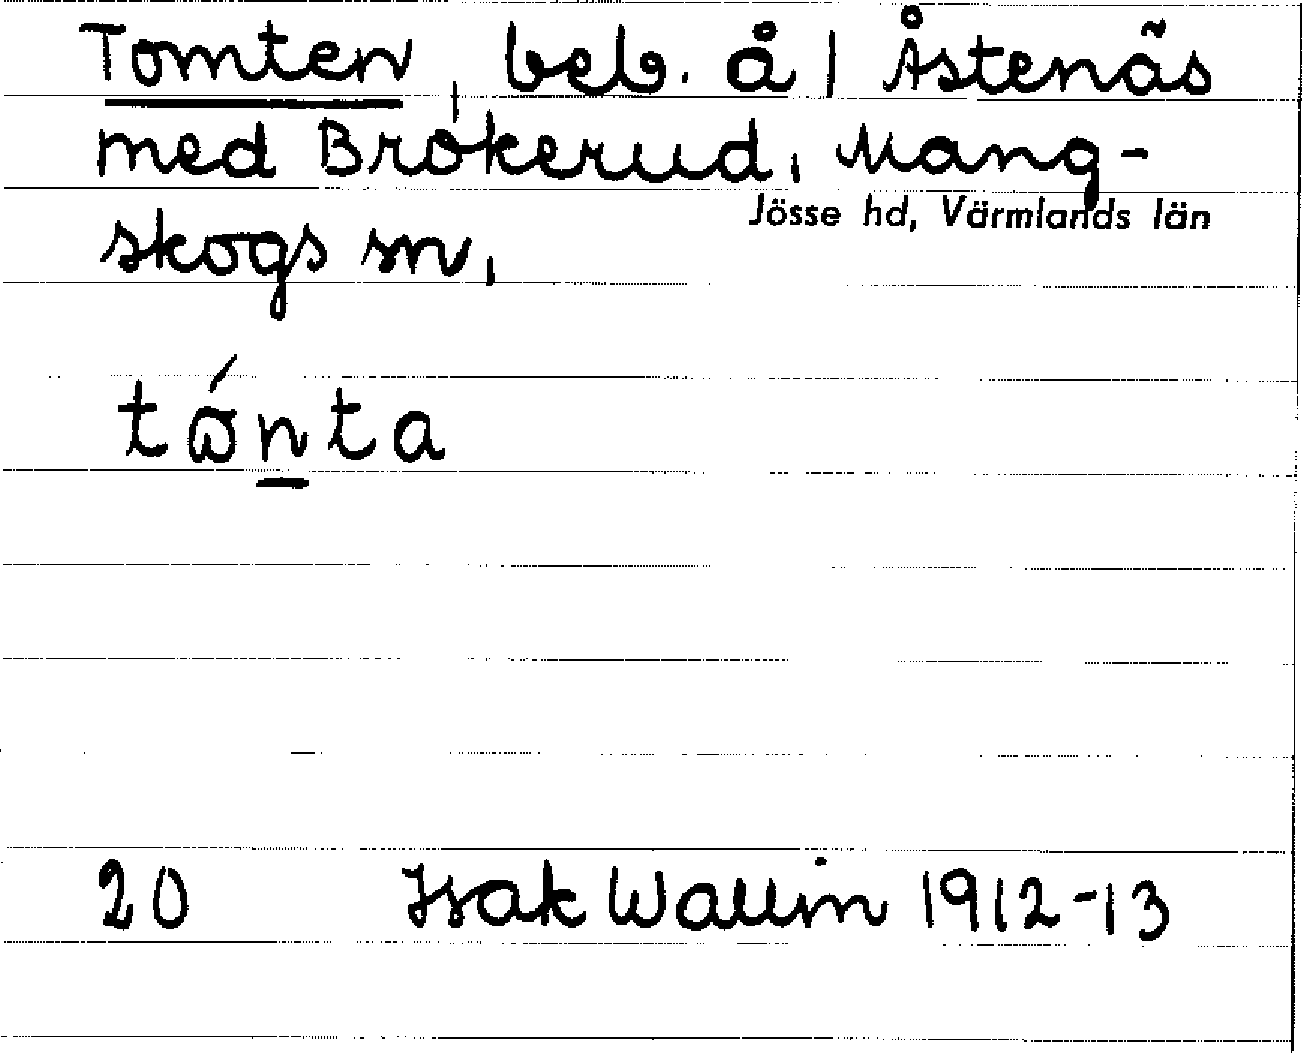 Tomten, beb. å 1 Åstenäs
med Brökerud, Mang-
skogs sn,
Jösse hd, Värmlands län
tǿnta
20 Isak Wallin 1912-13